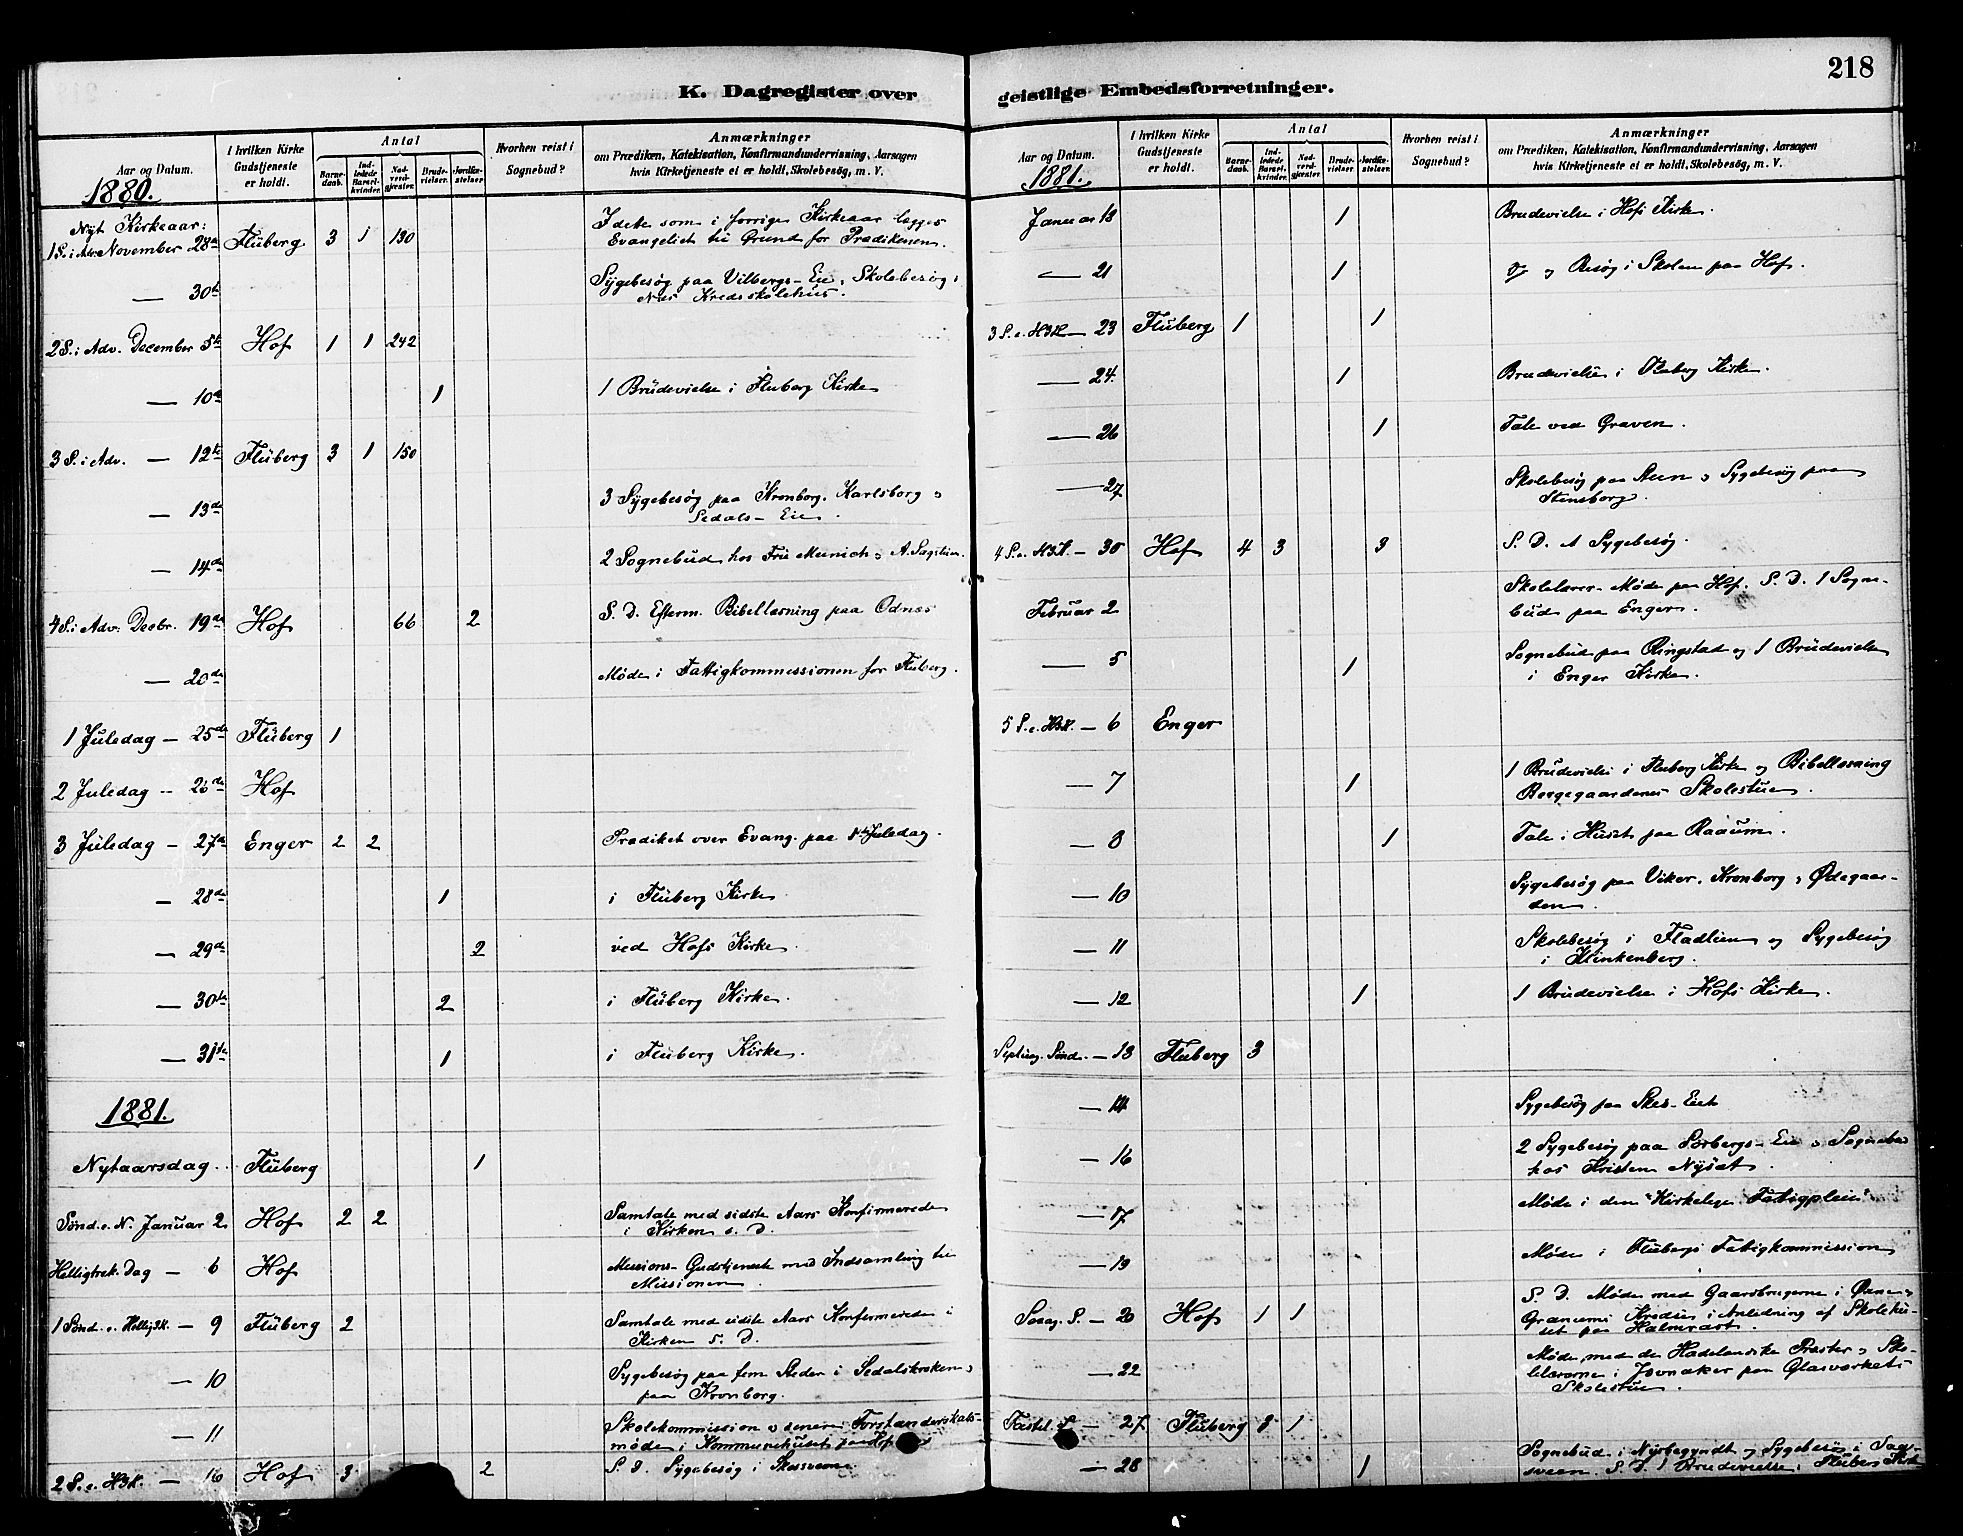 218
K. Dagregister over
geistlige Embedsforretninger.
Aar og Datum.
I hvilken Kirke
Gudstjeneste
er holdt.
Antal
Barne-
daab.
Ind-
ledede
Barsel-
kvinder.
Nad-
verd-
gjester.
Brude-
vielser.
Jordfæ-
stelser.
Hvorhen reist i
Sognebud?
Anmærkninger
om Prædiken, Katekisation, Konfirmandundervisning, Aarsagen
hvis Kirketjeneste ei er holdt, Skolebesøg, m. V.
1880.
Nyt Kirkeaar:
1 S. i Adv. November 28de Fluberg 3 1 130 I dette som i forrige Kirkeaar lægges
Evangeliet til Grund for Prædikenen.
— 30te Sygebesøg paa Vilbergs-Eie, Skolebesøg i
Næs Kredsskolehus.
2 S. i Adv. December 5te Hof 1 1 242
— 10de 1 1 Brudevielse i Fluberg Kirke
3 S. i Adv. — 12te Fluberg 3 1 150
— 13de 3 Sygebesøg paa Kronborg, Karlsborg o
Sedals-Eie.
— 14de 2 Sognebud hos Fru Munich o A.
4 S. i Adv. Decbr. 19de Hof 66 2 S. D. Efterm. Bibellæsning paa Odnæs
— 20de Møde i Fattigkommissionen for Fluberg.
1 Juledag — 25de Fluberg 1
2 Juledag — 26de Hof
3 Juledag — 27de Enger 2 2 Prædiket over Evang. paa 1ste Juledag.
— 28de 1 i Fluberg Kirke
— 29de 2 ved Hofs Kirke.
— 30te 2 i Fluberg Kirke.
— 31te 1 i Fluberg Kirke.
1881.
Nytaarsdag Fluberg 1
Sønd. e. N. Januar 2 Hof 2 2 Samtale med sidste Aars Konfirmerede
i Kirken s. D.
Helligtrek. Dag — 6 Hof Missions-Gudstjeneste med Indsamling til
Missionen.
1 Sønd. e. Hellig3K. — 9 Fluberg 2 Samtale med sidste Aars Konfirmerede i
Kirken S. D.
— 10 Sygebesøg paa fem Steder i Sedalskroken o
paa Kronborg.
— 11 Skolekommission o senere Forstanderskabs-
møde i Kommunehuset paa Hof
2 S. e. H3K. — 16 Hof 3 2 S. D. Sygebesøg i
Aar og Datum.
I hvilken Kirke
Gudstjeneste
er holdt.
Antal
Barne-
daab.
Ind-
ledede
Barsel-
kvinder.
Nad-
verd-
gjester.
Brude-
vielser.
Jordfæ-
stelser.
Hvorhen reist i
Sognebud?
Anmærkninger
om Prædiken, Katekisation, Konfirmandundervisning, Aarsagen
hvis Kirketjeneste ei er holdt, Skolebesøg, m. V.
1881.
Januar 18 1 Brudevielse i Hofs Kirke.
— 21 1 o Besøg i Skolen paa Hof.
3 S. e. H3K — 23 Fluberg 1 1
— 24. 1 Brudevielse i Fluberg Kirke.
— 26 1 Tale ved Graven.
— 27 Skolebesøg paa Steen o Sygebesøg paa
Stensborg.
4 S. e. H3K. — 30 Hof 4 3 3 S. D. 1 Sygebesøg.
Februar 2 Skolelærer-Møde paa Hof. S. D. 1 Sogne-
bud paa Enger.
— 5 1 Sognebud paa Ringstad og 1 Brudevielse
i Enger Kirke.
5 S. e. H3K. — 6 Enger
— 7 1 1 Brudevielse i Fluberg Kirke og Bibellæsning
Bergegaardenes Skolestue.
— 8 1 Tale i Huset paa Raaum.
— 10 Sygebesøg paa Viker, Kronborg o Ødegaar-
den.
— 11 Skolebesøg i Fladlien og Sygebesøg
i Klinkenberg.
— 12 1 1 Brudevielse i Hofs Kirke.
Septuag. Sønd. — 13 Fluberg 3
— 14 Sygebesøg paa
— 16 2 Sygebesøg paa Sørbergs-Eie o Sognebud
hos Kristen Nysæt.
— 17 Møde i den "Kirkelige Fattigpleie"
— 19 Møde i Flubergs Fattigkommission
Sexag. S. — 20 Hof 1 1 S. D. Møde med Gaardbrugerne i
Granums Kredse i Anledning af Skolehu-
set paa
— 22 Møde med de Hadelandske Præster o Sko-
lelærerne i Jevnaker paa Glasværkets
Skolestue.
Fastel. S. — 27 Fluberg 8 1
— 28 1 Sognebud i Nyrbegyndt og Sygebesøg i
S. D. 1 Brudevielse i Fluberg Kirk